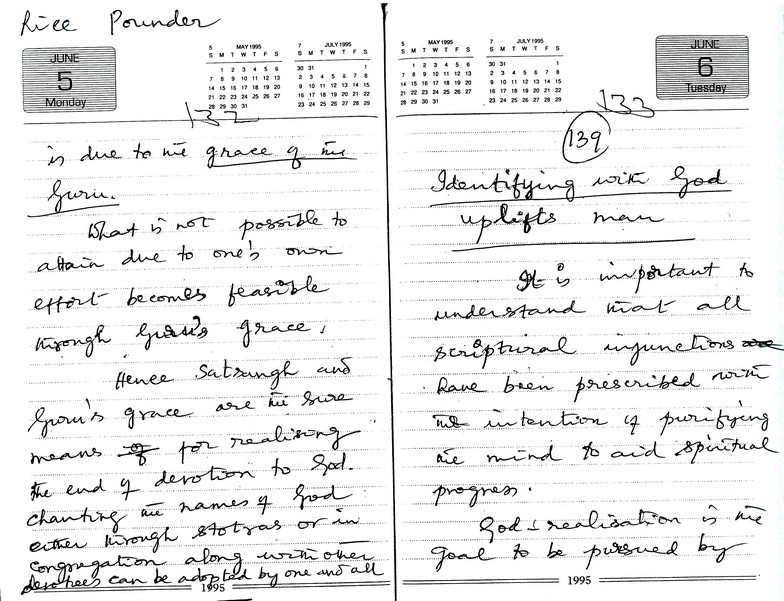 Rice Pounder
JUNE
5
Monday
5 MAY 1995
S M T W T F S
1 2 3 4 5 6
7 8 9 10 11 12 13
14 15 16 17 18 19 20
21 22 23 24 25 26 27
28 29 30 31
7 JULY 1995
S M T W T F S
30 31 1
2 3 4 5 6 7 8
9 10 11 12 13 14 15
16 17 18 19 20 21 22
23 24 25 26 27 28 29
132
is due to the grace of the
Guru.
What is not possible to
attain due to one's own
effort becomes feasible
through Guru's grace.
Hence Satsangh and
Guru's grace are the sure
means of for realising
the end of devotion to God.
Chanting the names of God
either through stotras or in
congregation along with other
devotees can be adopted by one and all
1995
5 MAY 1995
S M T W T F S
1 2 3 4 5 6
7 8 9 10 11 12 13
14 15 16 17 18 19 20
21 22 23 24 25 26 27
28 29 30 31
7 JULY 1995
S M T W T F S
30 31 1
2 3 4 5 6 7 8
9 10 11 12 13 14 15
16 17 18 19 20 21 22
23 24 25 26 27 28 29
JUNE
6
Tuesday
133
139
Identifying with God
uplifts man
It is important to
understand that all
scriptural injunctions are
have been prescribed with
the intention of purifying
the mind to aid spiritual
progress.
God-realisation is the
goal to be pursued by
1995